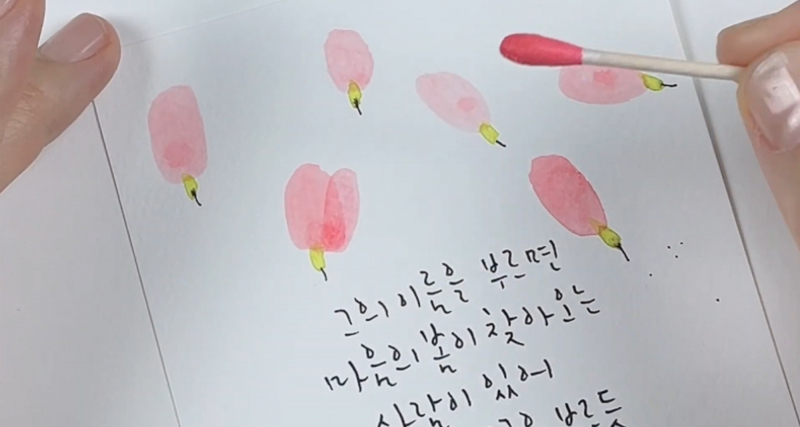 그의 이름을 부르면
마음의 봄이 찾아오는
사람이 있어
부르듯